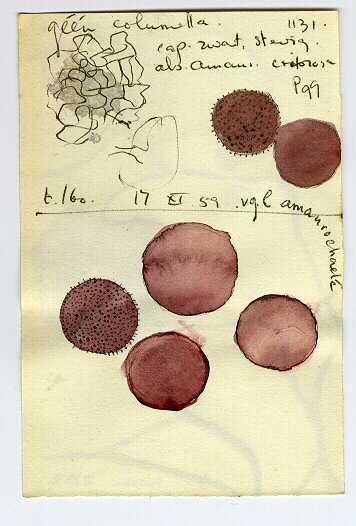 géén columella. 1131.
cap. zwart, stevig.
als amaur. cribrosa
P99
t. 160. 17 XI 59. vgl amaurochaete